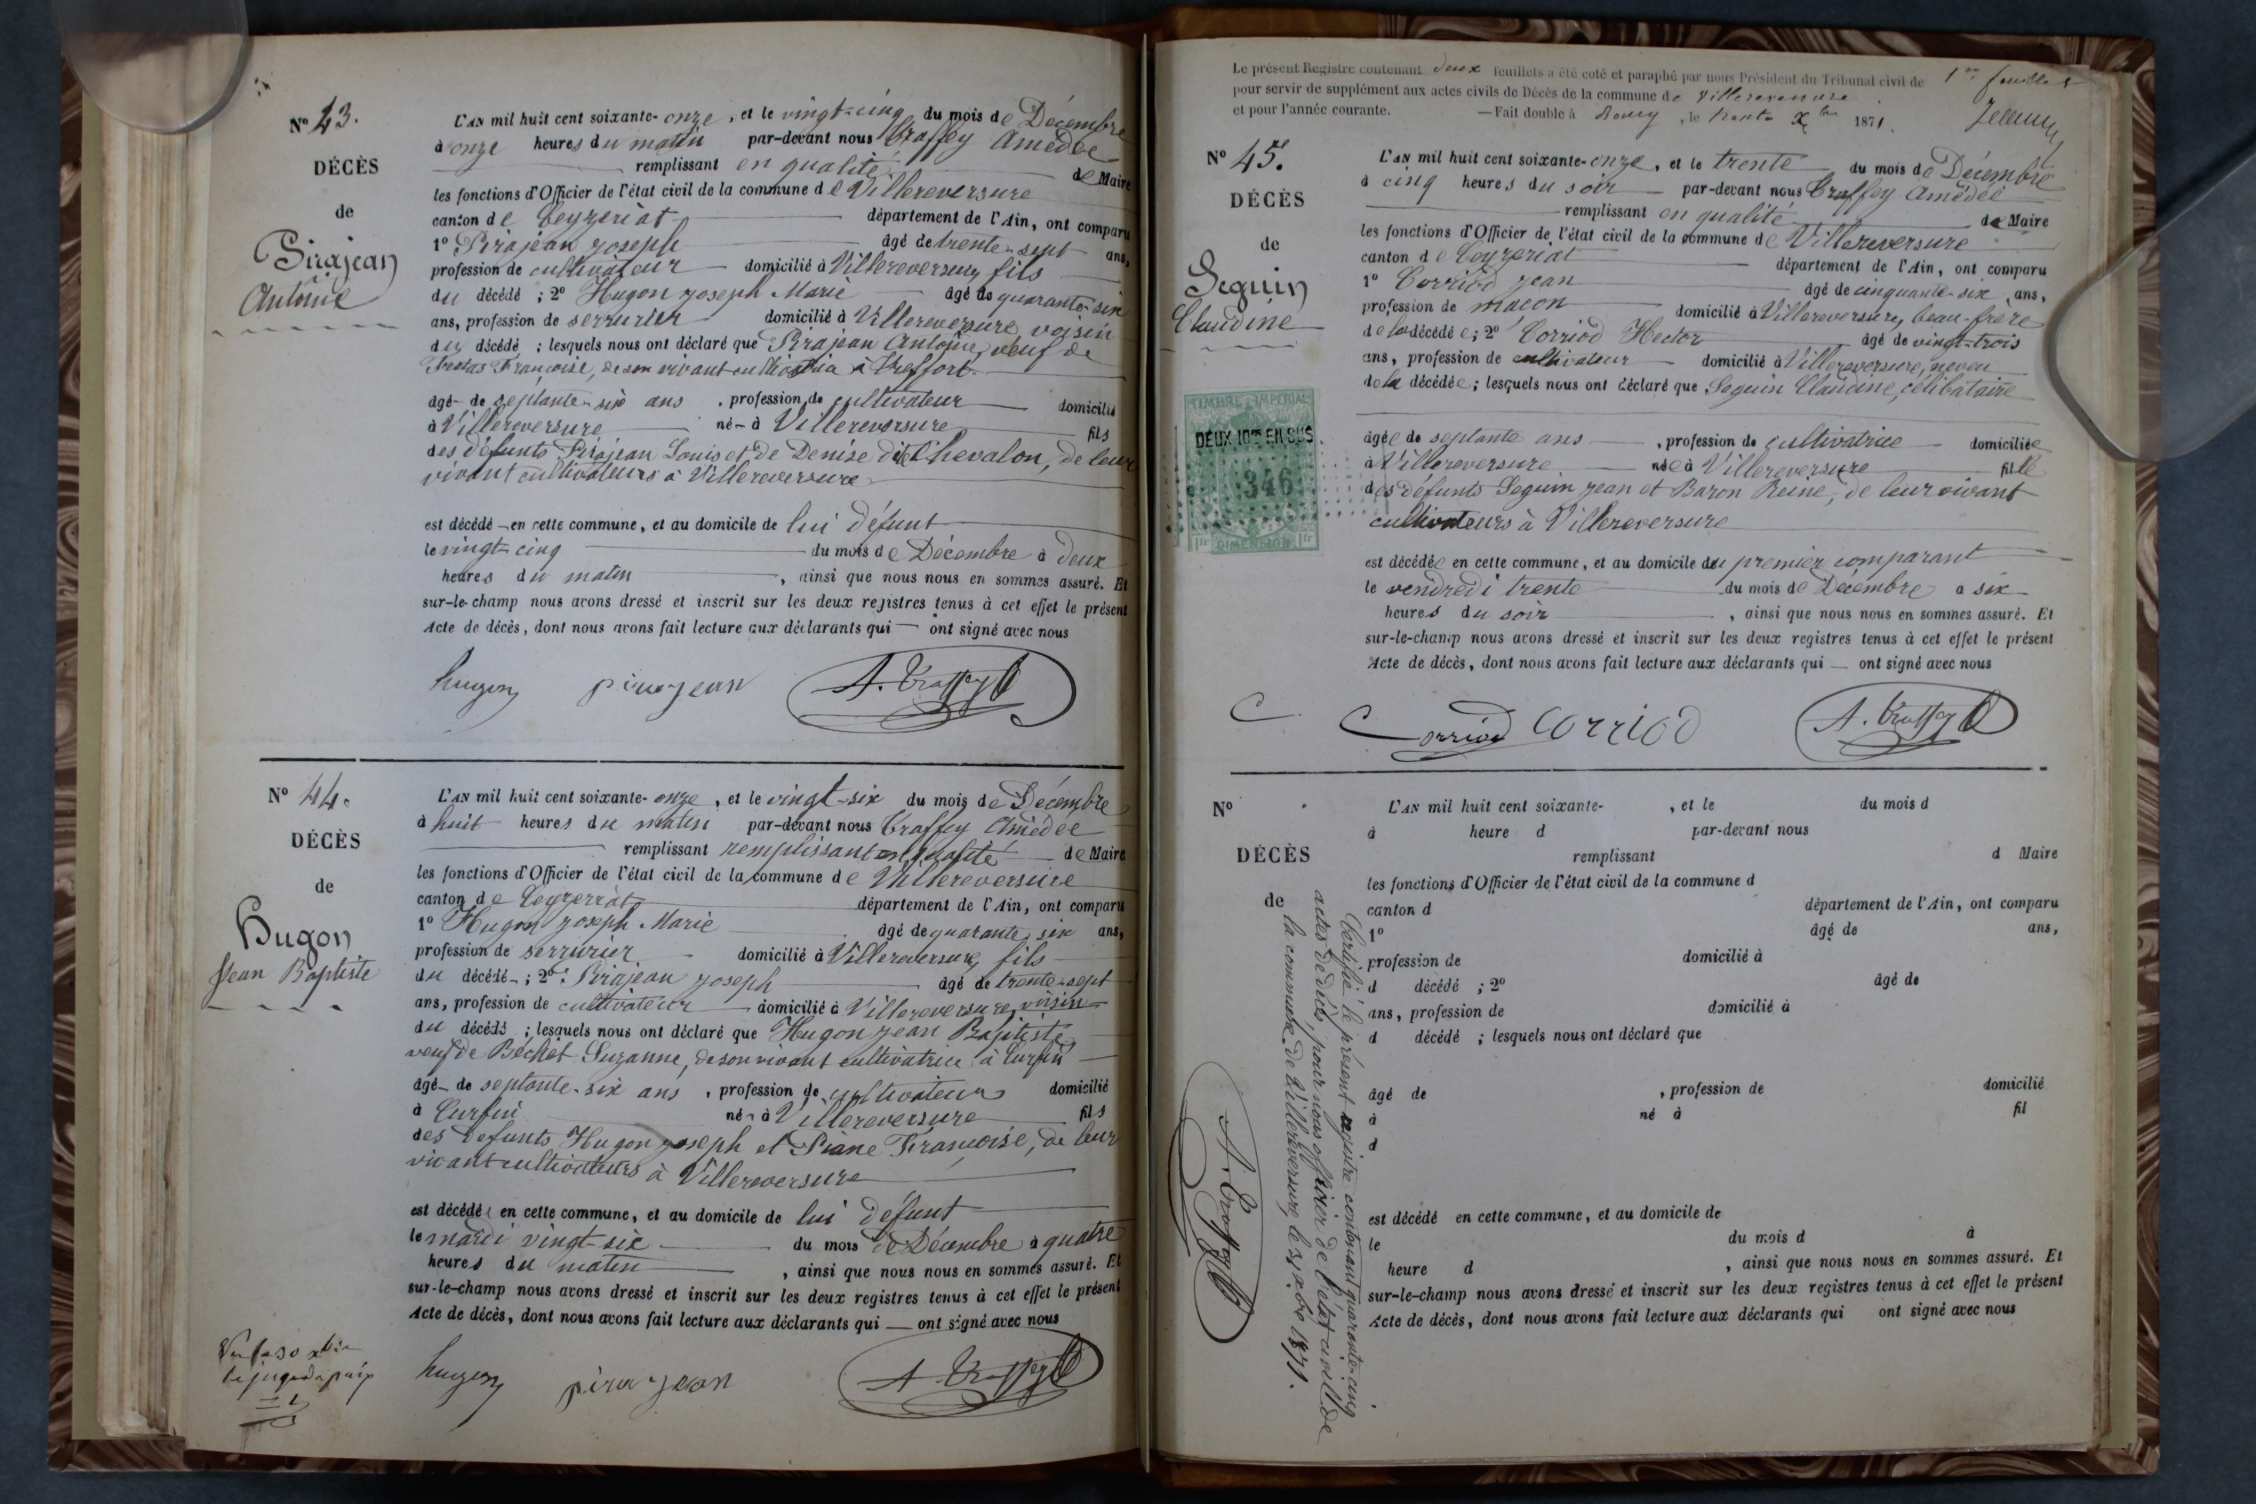 Nº 43.
DÉCÈS
de
Pirajean
Antoine
L'AN mil huit cent soixante-onze, et le vingt-cinq du mois de Décembre
à onze heures du matin par-devant nous Craffey Amédée
remplissant en qualité de Maire
les fonctions d'Officier de l'état civil de la commune de Villereversure
canton de Ceyzeriat département de l'Ain, ont comparu
1º Pirajean Joseph âgé de trente-sept ans,
profession de cultivateur domicilié à Villereversure, fils
du décédé ; 2º Hugon Joseph Marie âgé de quarante-six
ans, profession de serrurier domicilié à Villereversure voisin
du décédé ; lesquels nous ont déclaré que Pirajean Antoine, veuf de
Françoise, de son vivant à Treffort
âgé de septante-six ans, profession de cultivateur domicilié
à Villereversure né à Villereversure fils
des défunts Pirajean Louis et de Denise dite Chevalon, de leur
vivant cultivateurs à Villereversure
est décédé en cette commune, et au domicile de lui défunt
le vingt-cinq du mois de Décembre à deux
heures du matin, ainsi que nous nous en sommes assuré. Et
sur-le-champ nous avons dressé et inscrit sur les deux registres tenus à cet effet le présent
Acte de décès, dont nous avons fait lecture aux déclarants qui — ont signé avec nous
hugon pirajean A. Craffey
Nº 44.
DÉCÈS
de
Hugon
Jean Baptiste
L'AN mil huit cent soixante-onze, et le vingt-six du mois de Décembre
à huit heures du matin par-devant nous Craffey Amédée
remplissant remplissant en qualité de Maire
les fonctions d'Officier de l'état civil de la commune de Villereversure
canton de Ceyzeriat département de l'Ain, ont comparu
1º Hugon Joseph Marie âgé de quarante-six ans,
profession de serrurier domicilié à Villereversure, fils
du décédé ; 2º Pirajean Joseph âgé de trente-sept
ans, profession de cultivateur domicilié à Villereversure, voisin
du décédé ; lesquels nous ont déclaré que Hugon Jean Baptiste
veuf de Béchet Suzanne, de son vivant cultivatrice à Curfin
âgé de septante-six ans, profession de cultivateur domicilié
à Curfin né à Villereversure fils
des défunts Hugon Joseph et Piane Françoise, de leur
vivant cultivateurs à Villereversure
est décédé en cette commune, et au domicile de lui défunt
le mardi vingt-six du mois de Décembre à quatre
heures du matin, ainsi que nous nous en sommes assuré. Et
sur-le-champ nous avons dressé et inscrit sur les deux registres tenus à cet effet le présent
Acte de décès, dont nous avons fait lecture aux déclarants qui — ont signé avec nous
Vu le 30 Xbre
le juge de paix
hugon pirajean A. Craffey
Le présent Registre contenant deux feuillets a été coté et paraphé par nous Président du Tribunal civil de
pour servir de supplément aux actes civils de Décès de la commune de Villereversure
et pour l'année courante. — Fait double à Bourg, le trente Xbre 1871.
1er feuillet
Nº 45.
DÉCÈS
de
Seguin
Claudine
TIMBRE IMPÉRIAL
DEUX 10mes EN SUS.
346
1fr DIMENSION 1fr
L'AN mil huit cent soixante-onze, et le trente du mois de Décembre
à cinq heures du soir par-devant nous Craffey Amédée
remplissant en qualité de Maire
les fonctions d'Officier de l'état civil de la commune de Villereversure
canton de Ceyzeriat département de l'Ain, ont comparu
1º Corriod Jean âgé de cinquante-six ans,
profession de maçon domicilié à Villereversure, beau-frère
de la décédée ; 2º Corriod Hector âgé de vingt-trois
ans, profession de cultivateur domicilié à Villereversure, neveu
de la décédée ; lesquels nous ont déclaré que Seguin Claudine, célibataire
âgée de septante ans, profession de cultivatrice domiciliée
à Villereversure née à Villereversure fille
des défunts Seguin Jean et Baron Reine, de leur vivant
cultivateurs à Villereversure
est décédée en cette commune, et au domicile du premier comparant
le vendredi trente du mois de Décembre à six
heures du soir, ainsi que nous nous en sommes assuré. Et
sur-le-champ nous avons dressé et inscrit sur les deux registres tenus à cet effet le présent
Acte de décès, dont nous avons fait lecture aux déclarants qui — ont signé avec nous
C Corriod Corriod A. Craffey
Nº
DÉCÈS
de
L'AN mil huit cent soixante- , et le du mois d
à heure d par-devant nous
remplissant d Maire
les fonctions d'Officier de l'état civil de la commune d
canton d département de l'Ain, ont comparu
1º âgé de ans,
profession de domicilié à
d décédé ; 2º âgé de
ans, profession de domicilié à
d décédé ; lesquels nous ont déclaré que
âgé de , profession de domicilié
à né à fil
d
est décédé en cette commune, et au domicile de
le du mois d à
heure d , ainsi que nous nous en sommes assuré. Et
sur-le-champ nous avons dressé et inscrit sur les deux registres tenus à cet effet le présent
Acte de décès, dont nous avons fait lecture aux déclarants qui ont signé avec nous
Certifié le présent registre contenant quarante-cinq
actes de décès, pour nous officier de l'état civil de
la commune de Villereversure, le 31 Xbre 1871.
A. Craffey